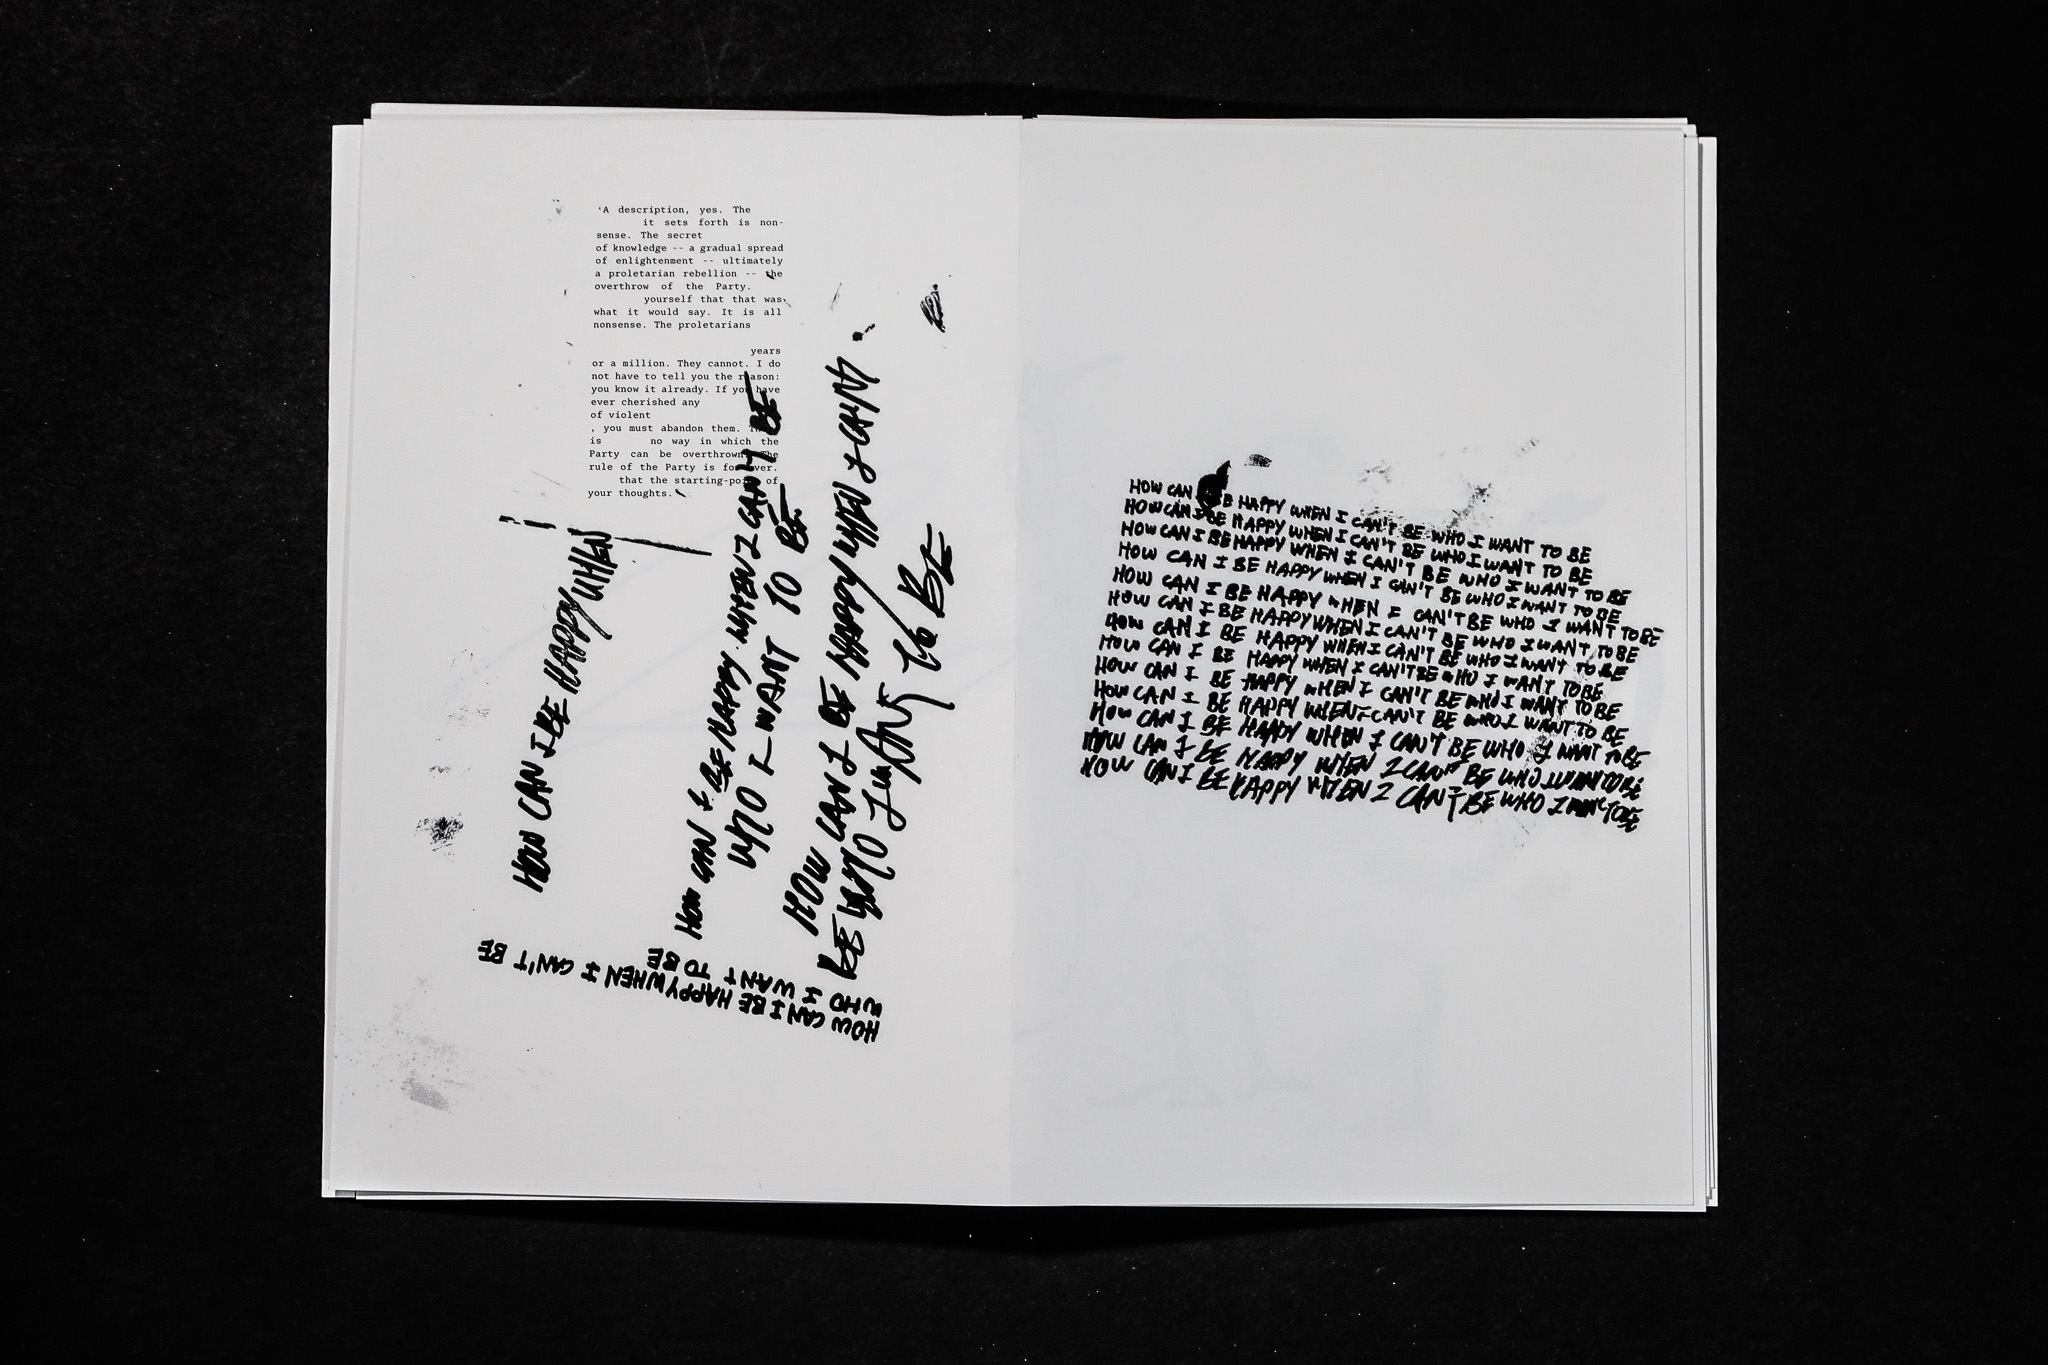 'A description, yes. The
it sets forth is non-
sense. The secret
of knowledge -- a gradual spread
of enlightenment -- ultimately
a proletarian rebellion -- the
overthrow of the Party.
yourself that that was
what it would say. It is all
nonsense. The proletarians
years
or a million. They cannot. I do
not have to tell you the reason:
you know it already. If you have
ever cherished any
of violent
, you must abandon them.
is no way in which the
Party can be overthrown. The
rule of the Party is for ver.
that the starting-point of
your thoughts.
HOW CAN I BE HAPPY WHEN
HOW CAN I BE HAPPY WHEN I CAN'T BE
WHO I WANT TO BE
HOW CAN I BE HAPPY WHEN I CAN'T
BE WHO I WANT TO BE
HOW CAN I BE HAPPY WHEN I CAN'T BE
WHO I WANT TO BE
HOW CAN BE HAPPY WHEN I CAN'T BE WHO I WANT TO BE
HOW CAN I BE HAPPY WHEN I CAN'T BE WHO I WANT TO BE
HOW CAN I BE HAPPY WHEN I CAN'T BE WHO I WANT TO BE
HOW CAN I BE HAPPY WHEN I CAN'T BE WHO I WANT TO BE
HOW CAN I BE HAPPY WHEN I CAN'T BE WHO I WANT TO BE
HOW CAN I BE HAPPY WHEN I CAN'T BE WHO I WANT TO BE
HOW CAN I BE HAPPY WHEN I CAN'T BE WHO I WANT TO BE
HOW CAN I BE HAPPY WHEN I CAN'T BE WHO I WANT TO BE
HOW CAN I BE HAPPY WHEN I CAN'T BE WHO I WANT TO BE
HOW CAN I BE HAPPY WHEN I CAN'T BE WHO I WANT TO BE
HOW CAN I BE HAPPY WHEN I CAN'T BE WHO I WANT TO BE
HOW CAN I BE HAPPY WHEN I CAN'T BE WHO I WANT TO BE
HOW CAN I BE HAPPY WHEN I CAN'T BE WHO I WANT TO BE